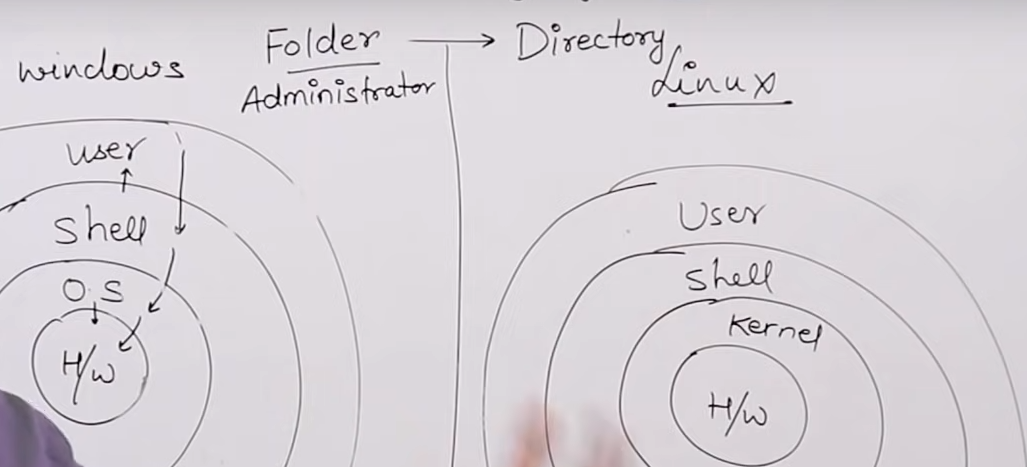 Folder → Directory
windows
Administrator
Linux
user
Shell
O,S
H/w
User
Shell
Kernel
H/w